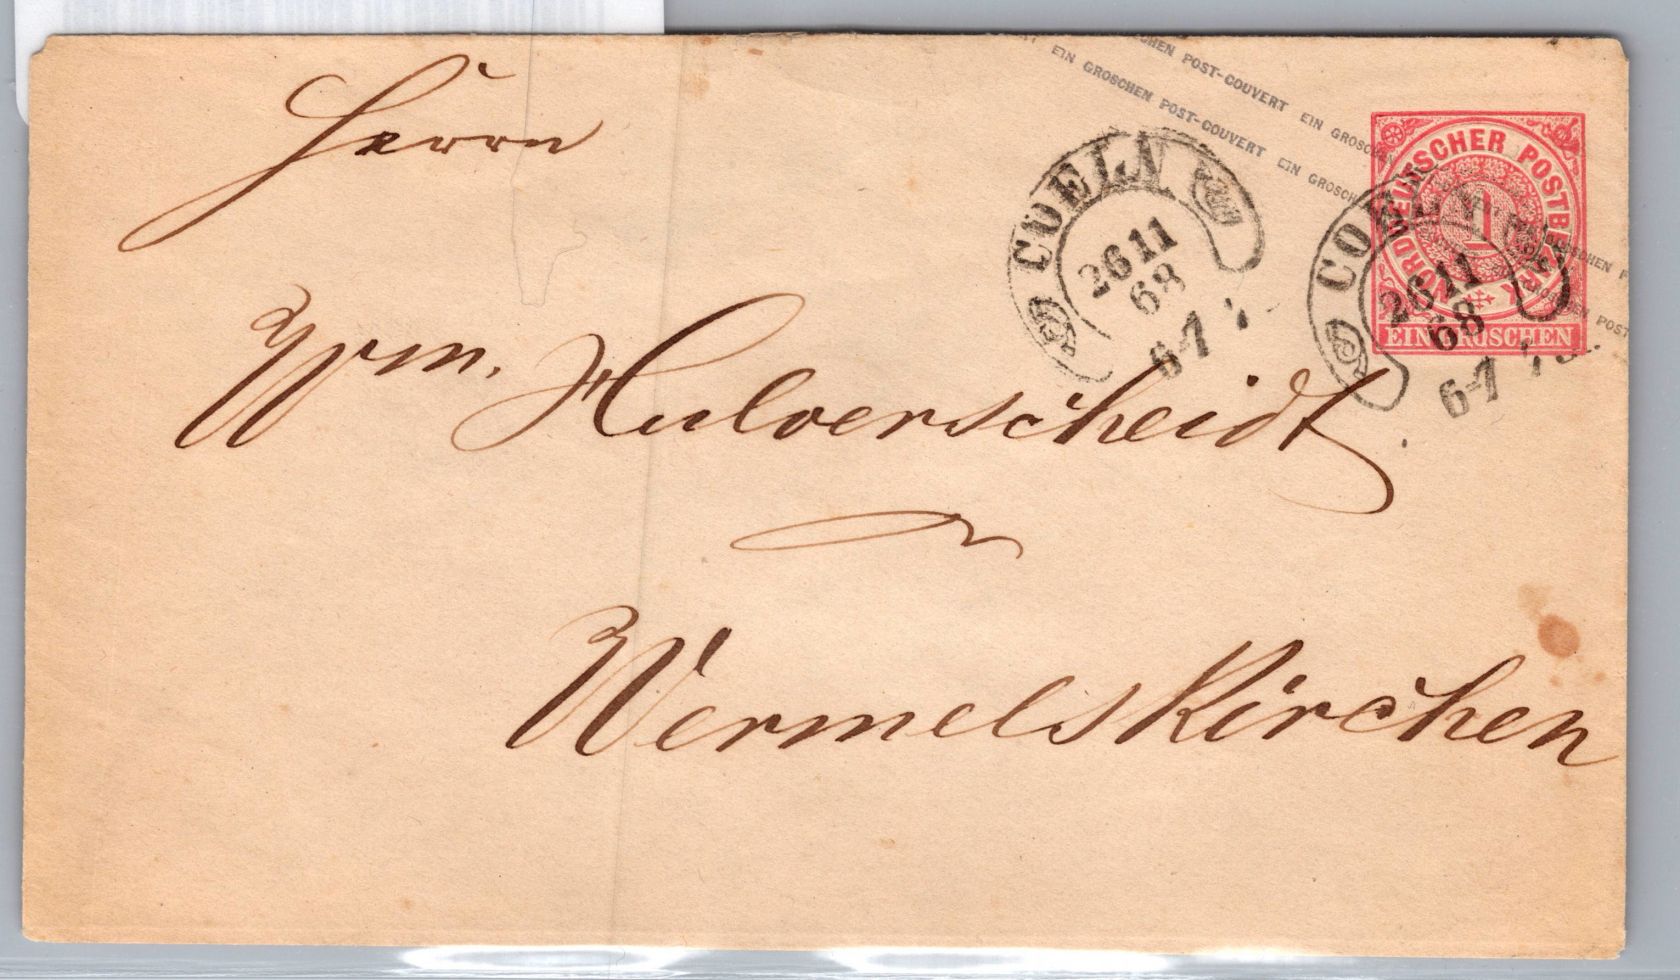 EIN GROSCHEN POST-COUVERT EIN GROSCHEN
EIN GROSCHEN POST-COUVERT EIN GROSCHEN
NORDDEUTSCHER POSTBEZIRK
1
EIN GROSCHEN
COELN
26 11
68
6-7
COELN
26 11
68
6-7
Herrn
Wm. Hulverscheidt
Wermelskirchen